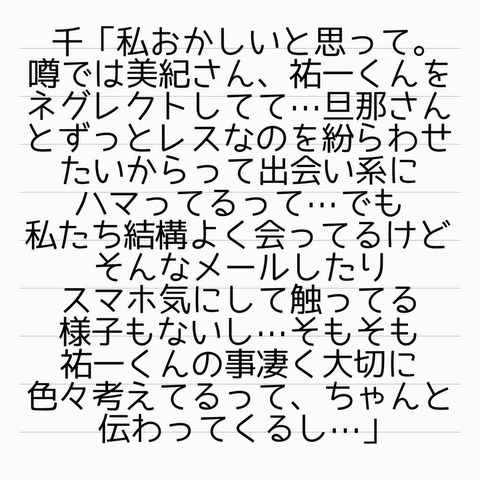 千「私おかしいと思って。
噂では美紀さん、祐一くんを
ネグレクトしてて…旦那さん
とずっとレスなのを紛らわせ
たいからって出会い系に
ハマってるって…でも
私たち結構よく会ってるけど
そんなメールしたり
スマホ気にして触ってる
様子もないし…そもそも
祐一くんの事凄く大切に
色々考えてるって、ちゃんと
伝わってくるし…」